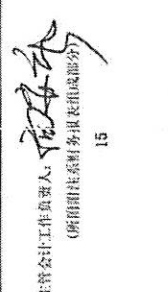 主管会计工作负责人:
(所附附注系财务报表组成部分)
15